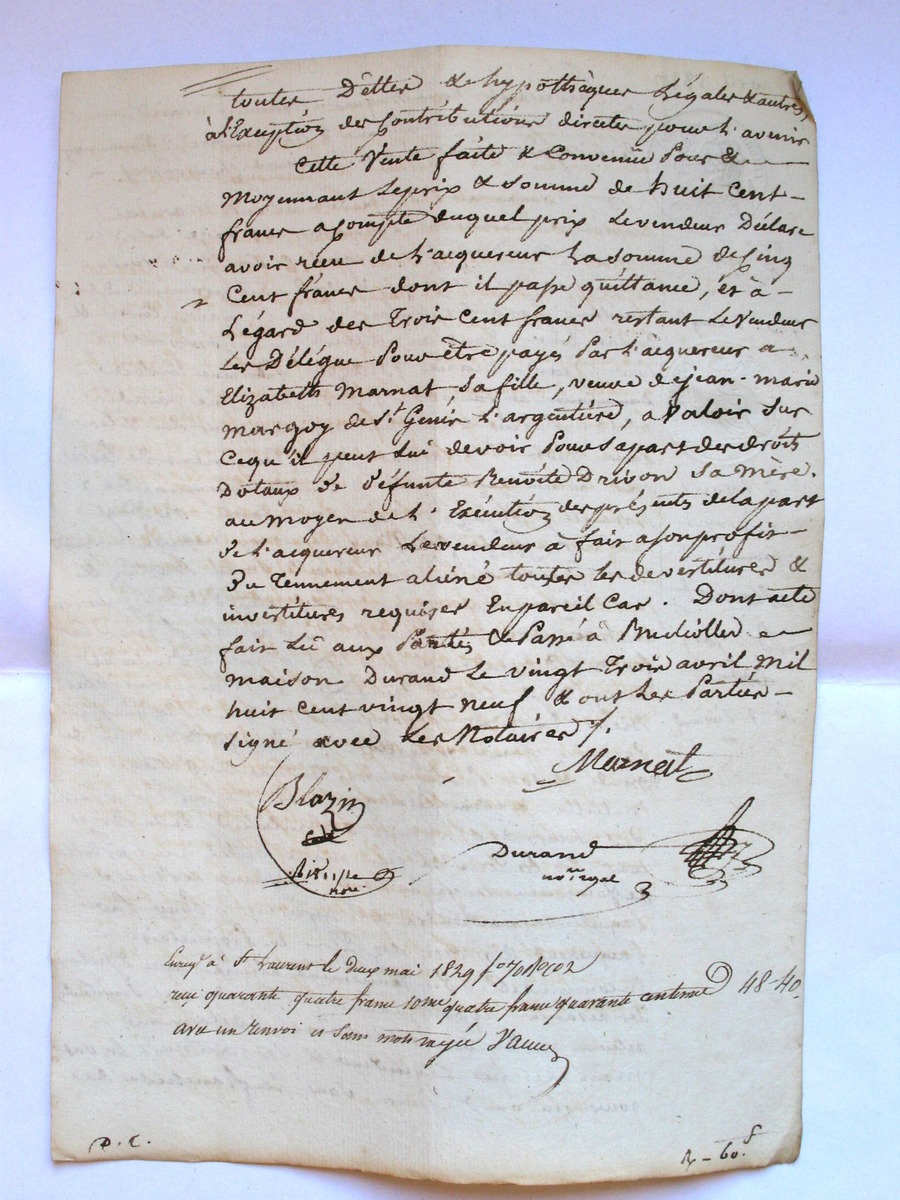 toutes Dettes & hypothèques Légales & autres,
à L'Exeption des Contributions directes pour L'avenir
Cette Vente faite & Convenüe Pour &
Moyennant Le prix & Somme de huit Cent
francs acompte duquel prix Le vendeur Déclare
avoir reçu de L'acquereur La somme de Cinq
Cent francs dont il passe quittance, et à
L'égard des Trois Cent francs restant Le Vendeur
Les Délégue Pour être payés Par L'acquereur a
Elizabeth Marnat Sa fille, veuve de jean-marie
Margoy de St Genis L'argentière, a Valoir Sur
Ce qu'il peut Lui devoir Pour Sa part des droits
Dotaux de défunte Benoite Drivon Sa Mère.
au moyen de L'Exécution des présents de la part
de L'acquereur Le vendeur à fait a son profit
du Tennement aliéné toutes les devestitures &
investitures requises En pareil Cas. Dont acte
fait Lû aux Parties & Passé à
maison Durand Le vingt Trois avril Mil
huit Cent vingt neuf & ont Les Parties
Signé avec Les Notaires ./.
Marnat
Blazin
Durand
nore royal
Enregé à St Laurent le deux mai 1829 fo 70
reçu quarante quatre francs 10me quatre francs quarante centimes 48-40
avec un renvoi et sans mots rayés
D. C.
R - 60.